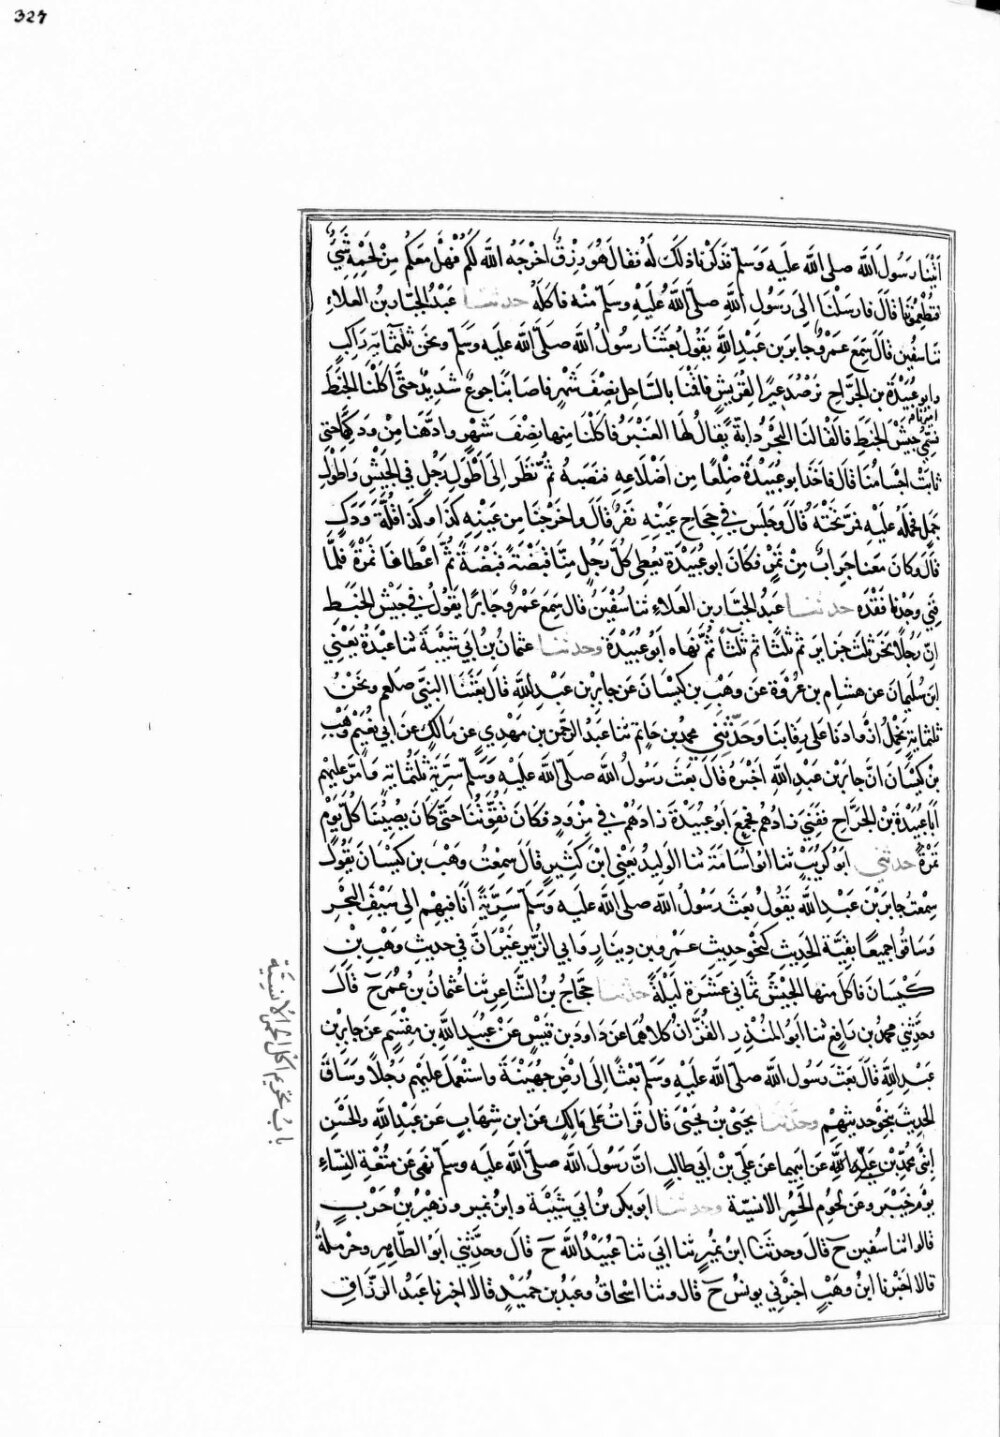 327
اتينا رسول الله صلى الله عليه وسلم فذكرنا ذلك له فقال هو رزق اخرجه الله لكم فهل معكم من لحمه شيء
فتطعمونا قال فارسلنا الى رسول الله صلى الله عليه وسلم منه فاكله حدثنا عبد الجبار بن العلاء
نا سفين قال سمع عمرو جابر بن عبد الله يقول بعثنا رسول الله صلى الله عليه وسلم ونحن ثلثمائة راكب
وابو عبيدة بن الجراح نرصد عيرا لقريش فاقمنا بالساحل نصف شهر فاصابنا جوع شديد حتى اكلنا الخبط
فسمي جيش الخبط فالقى لنا البحر دابة يقال لها العنبر فاكلنا منها نصف شهر وادهنا من ودكها حتى
ثابت اجسامنا قال فاخذ ابو عبيدة ضلعا من اضلاعه فنصبه ثم نظر الى اطول رجل في الجيش واطول
جمل فحمله عليه فمر تحته قال وجلس في حجاج عينه نفر قال واخرجنا من عينه كذا وكذا قلة ودك
قال وكان معنا جراب من تمر فكان ابو عبيدة يعطي كل رجل منا قبضة قبضة ثم اعطانا تمرة تمرة فلما
فني وجدنا فقده حدثنا عبد الجبار بن العلاء نا سفين قال سمع عمرو جابرا يقول في جيش الخبط
ان رجلا نحر ثلث جزاير ثم ثلثا ثم ثلثا ثم نهاه ابو عبيدة وحدثنا عثمان بن ابي شيبة ثنا عبدة يعني
ابن سليمان عن هشام بن عروة عن وهب بن كيسان عن جابر بن عبد الله قال بعثنا النبي صلعم ونحن
ثلثماية نحمل ازوادنا على رقابنا وحدثني محمد بن حاتم ثنا عبد الرحمن بن مهدي عن مالك عن ابي نعيم وهب
بن كيسان ان جابر بن عبد الله اخبره قال بعث رسول الله صلى الله عليه وسلم سرية ثلثمائة وامر عليهم
ابا عبيدة بن الجراح ففني زادهم فجمع ابو عبيدة زادهم في مزود فكان يقوتنا حتى كان يصيبنا كل يوم
تمرة حدثني ابو كريب ثنا ابو اسامة ثنا الوليد يعني ابن كثير قال سمعت وهب بن كيسان يقول
سمعت جابر بن عبد الله يقول بعث رسول الله صلى الله عليه وسلم سرية انا فيهم الى سيف البحر
وساقوا جميعا بقية الحديث كنحو حديث عمرو بن دينار وابي الزبير غير ان في حديث وهب بن
كيسان فاكل منها الجيش ثماني عشرة ليلة حدثنا حجاج بن الشاعر ثنا عثمان بن عمر ح قال
وحدثني محمد بن رافع ثنا ابو المنذر القزاز كلاهما عن داود بن قيس عن عبيد الله بن مقسم عن جابر بن
عبد الله قال بعث رسول الله صلى الله عليه وسلم بعثا الى ارض جهينة واستعمل عليهم رجلا وساق
الحديث بنحو حديثهم وحدثنا يحيى بن يحيى قال قرات على مالك عن ابن شهاب عن عبد الله والحسن
ابني محمد بن علي عن ابيهما عن علي بن ابي طالب ان رسول الله صلى الله عليه وسلم نهى عن متعة النساء
يوم خيبر وعن لحوم الحمر الانسية وحدثنا ابو بكر بن ابي شيبة وابن نمير وزهير بن حرب
قالوا ثنا سفين ح قال وحدثنا ابن نمير ثنا ابي ثنا عبيد الله ح قال وحدثني ابو الطاهر وحرملة
قالا اخبرنا ابن وهب اخبرني يونس ح قال وثنا اسحاق وعبد بن حميد قالا اخبرنا عبد الرزاق
باب تحريم اكل لحم الحمر الانسية